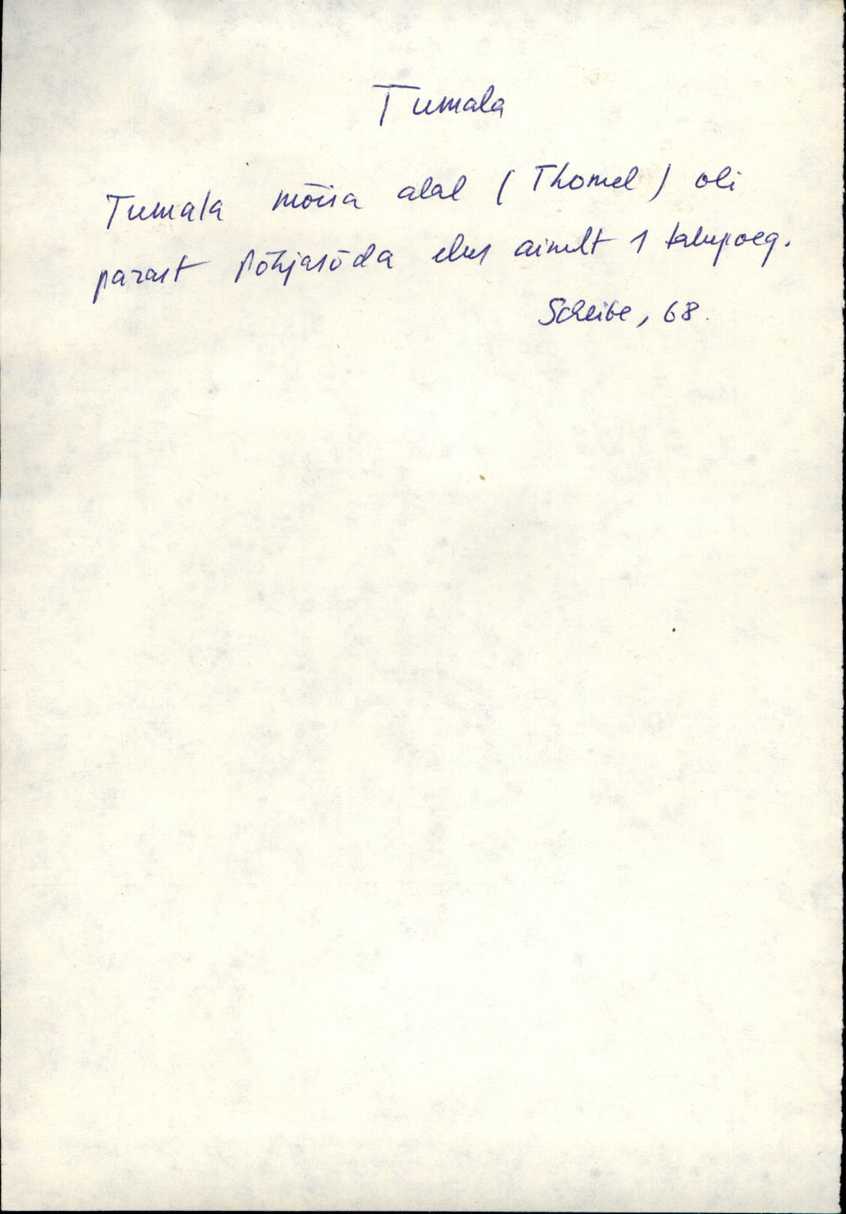 Tumala
Tumala mõisa alal (Thomel) oli
pärast Põhjasõda elus ainult 1 talupoeg.
Scheibe, 68.